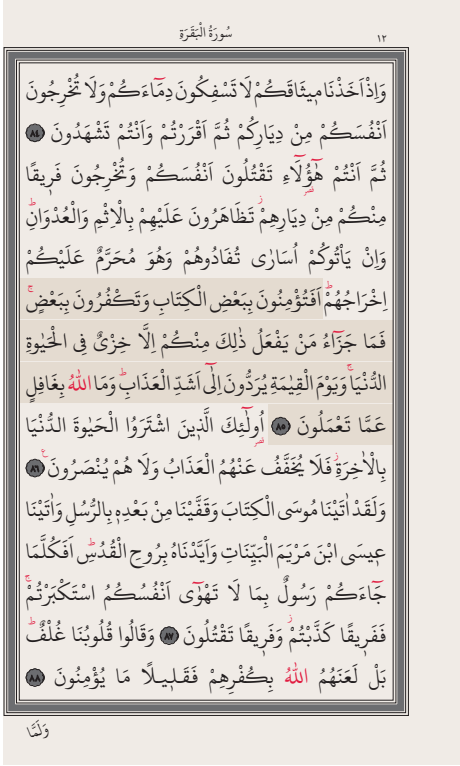 سُورَةُ الْبَقَرَةِ ١٢
وَاِذْ اَخَذْنَا مٖيثَاقَكُمْ لَا تَسْفِكُونَ دِمَٓاءَكُمْ وَلَا تُخْرِجُونَ
اَنْفُسَكُمْ مِنْ دِيَارِكُمْ ثُمَّ اَقْرَرْتُمْ وَاَنْتُمْ تَشْهَدُونَ ٨٤
ثُمَّ اَنْتُمْ هٰٓؤُ۬لَٓاءِ تَقْتُلُونَ اَنْفُسَكُمْ وَتُخْرِجُونَ فَرٖيقًا
مِنْكُمْ مِنْ دِيَارِهِمْۘ تَظَاهَرُونَ عَلَيْهِمْ بِالْاِثْمِ وَالْعُدْوَانِۜ
وَاِنْ يَأْتُوكُمْ اُسَارٰى تُفَادُوهُمْ وَهُوَ مُحَرَّمٌ عَلَيْكُمْ
اِخْرَاجُهُمْۜ اَفَتُؤْمِنُونَ بِبَعْضِ الْكِتَابِ وَتَكْفُرُونَ بِبَعْضٍۚ
فَمَا جَزَٓاءُ مَنْ يَفْعَلُ ذٰلِكَ مِنْكُمْ اِلَّا خِزْىٌ فِى الْحَيٰوةِ
الدُّنْيَاۚ وَيَوْمَ الْقِيٰمَةِ يُرَدُّونَ اِلٰٓى اَشَدِّ الْعَذَابِۜ وَمَا اللّٰهُ بِغَافِلٍ
عَمَّا تَعْمَلُونَ ٨٥ اُو۬لٰٓئِكَ الَّذٖينَ اشْتَرَوُا الْحَيٰوةَ الدُّنْيَا
بِالْاٰخِرَةِۘ فَلَا يُخَفَّفُ عَنْهُمُ الْعَذَابُ وَلَا هُمْ يُنْصَرُونَ ٨٦
وَلَقَدْ اٰتَيْنَا مُوسَى الْكِتَابَ وَقَفَّيْنَا مِنْ بَعْدِهٖ بِالرُّسُلِ وَاٰتَيْنَا
عٖيسَى ابْنَ مَرْيَمَ الْبَيِّنَاتِ وَاَيَّدْنَاهُ بِرُوحِ الْقُدُسِۜ اَفَكُلَّمَا
جَٓاءَكُمْ رَسُولٌ بِمَا لَا تَهْوٰٓى اَنْفُسُكُمُ اسْتَكْبَرْتُمْۚ
فَفَرٖيقًا كَذَّبْتُمْۘ وَفَرٖيقًا تَقْتُلُونَ ٨٧ وَقَالُوا قُلُوبُنَا غُلْفٌۜ
بَلْ لَعَنَهُمُ اللّٰهُ بِكُفْرِهِمْ فَقَلٖيلًا مَا يُؤْمِنُونَ ٨٨
وَلَمَّا